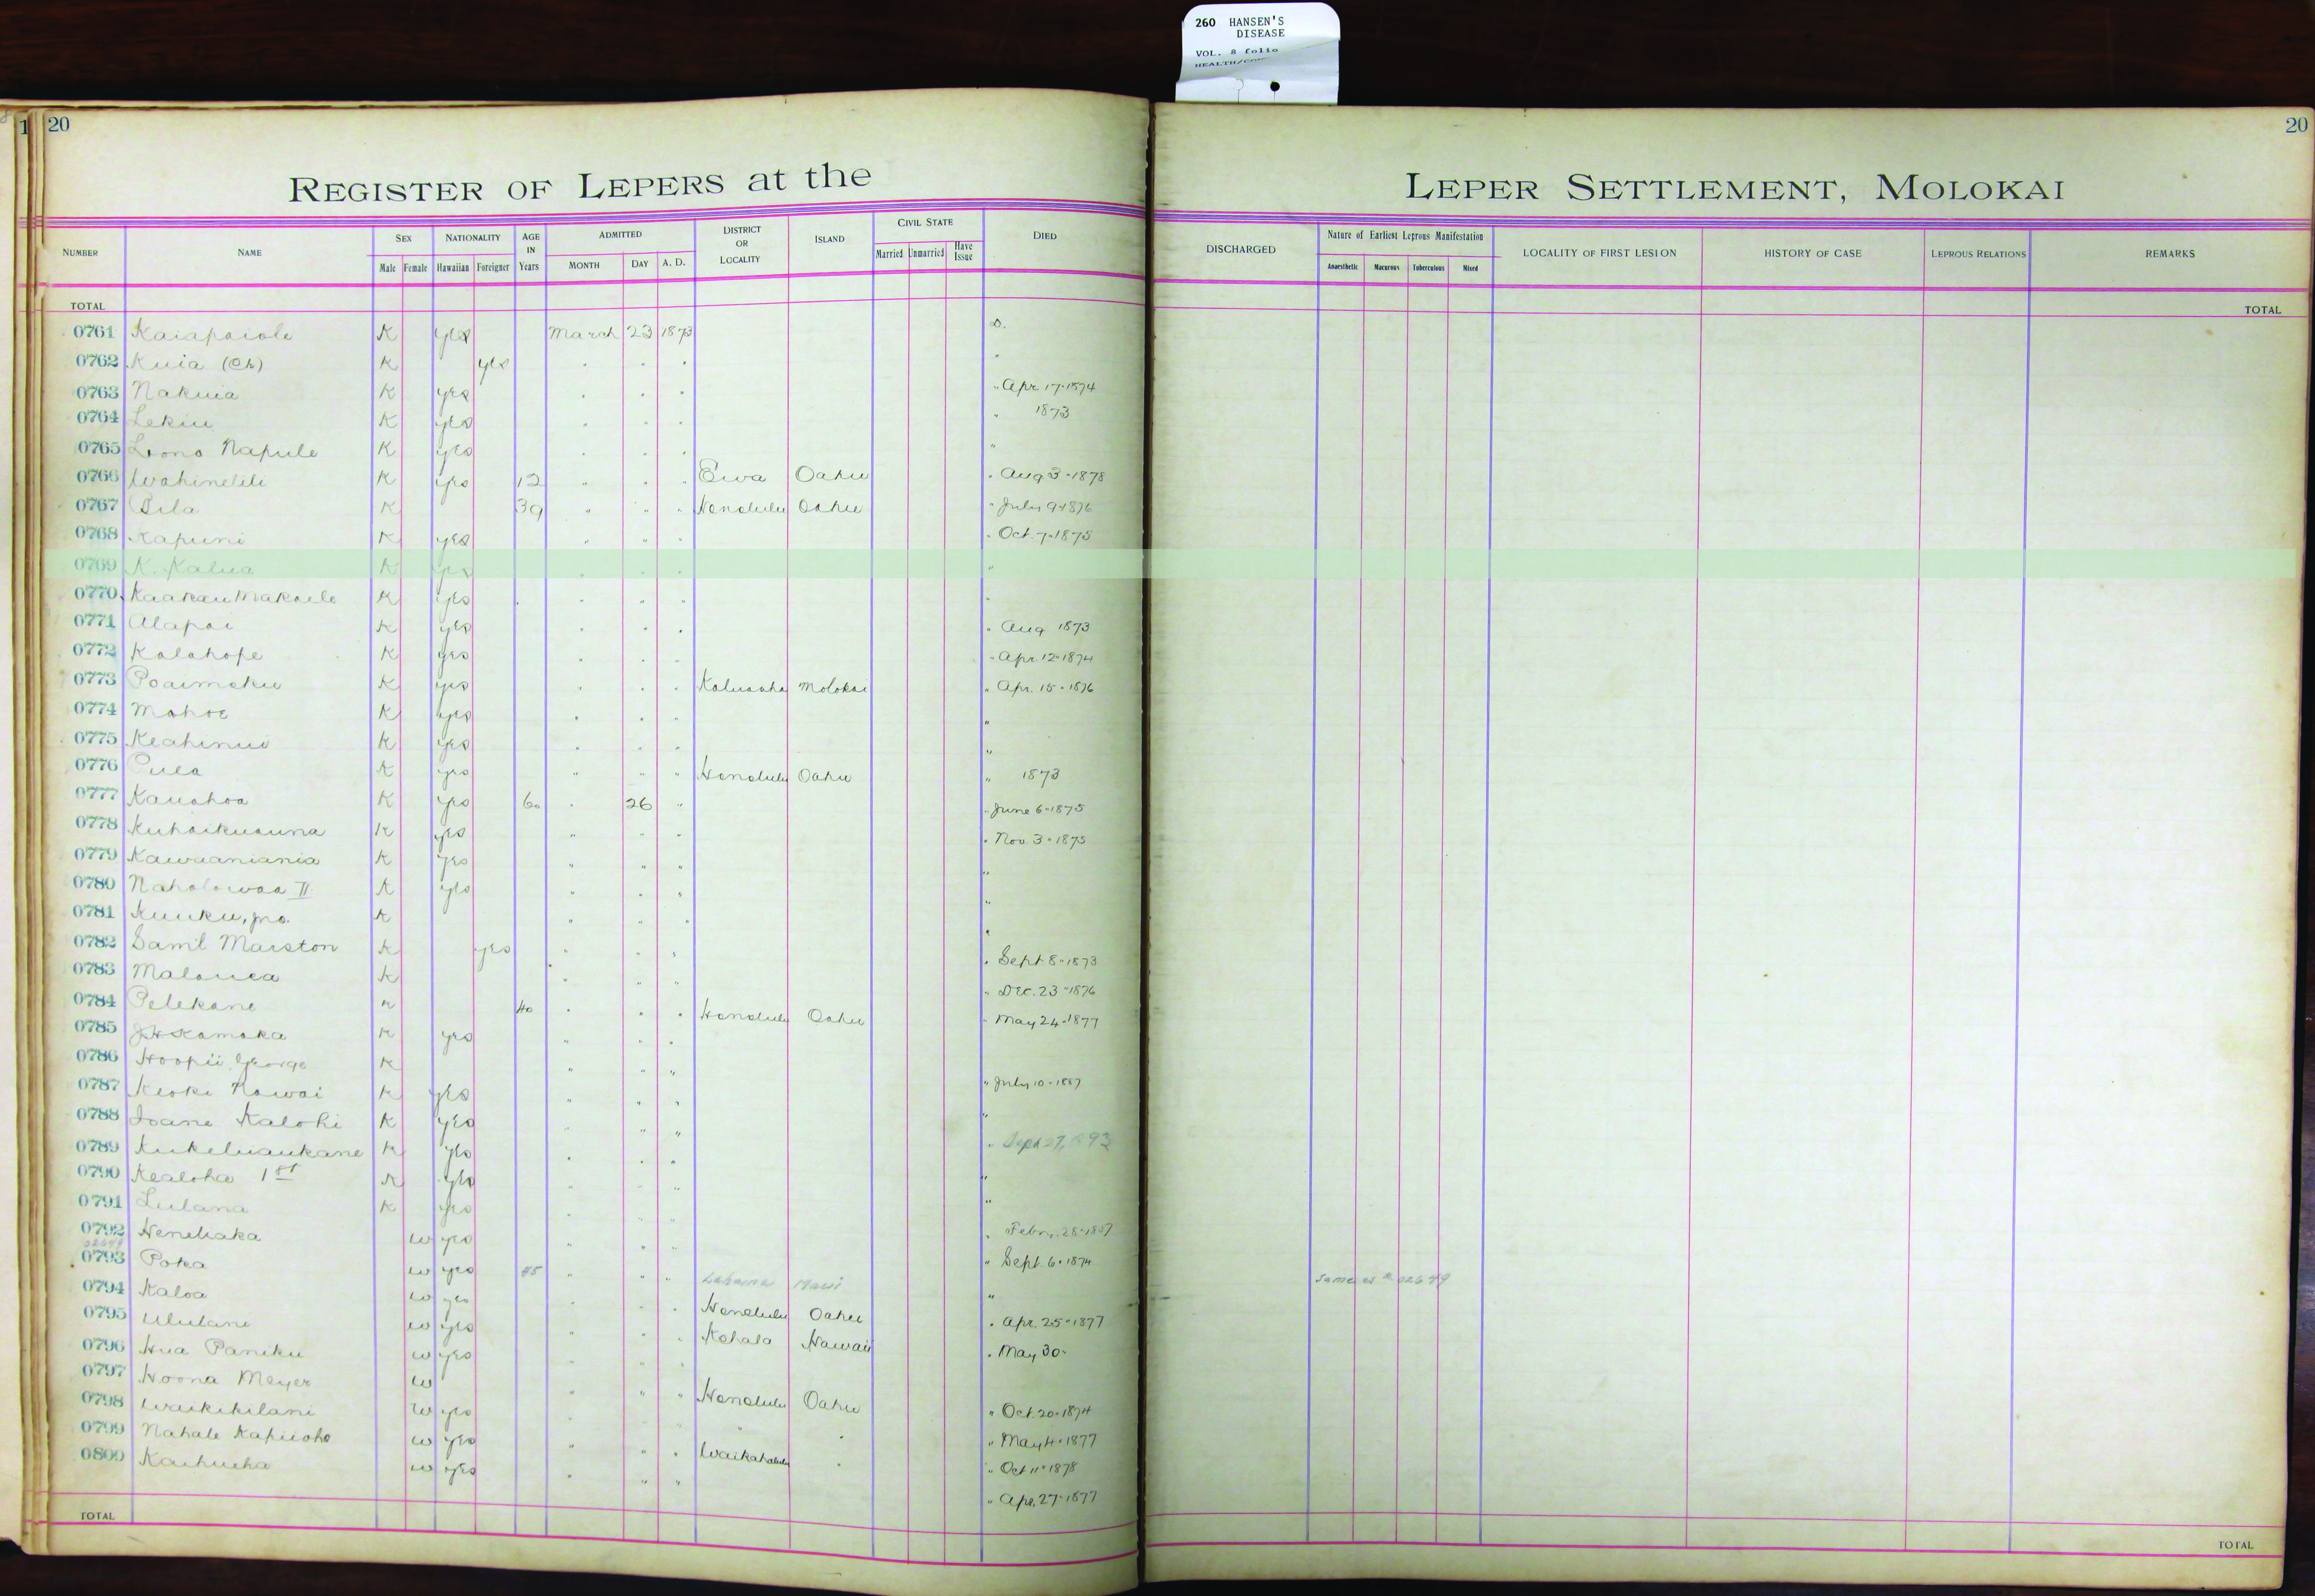 260 HANSEN'S
DISEASE
VOL. 8 folio
20
20
REGISTER OF LEPERS at the LEPER SETTLEMENT, MOLOKAI
NUMBER NAME SEX Male Female NATIONALITY Hawaiian Foreigner AGE IN Years ADMITTED MONTH DAY A. D. DISTRICT OR LOCALITY ISLAND CIVIL STATE Married Unmarried Have Issue DIED DISCHARGED Nature of Earliest Leprous Manifestation Anaesthetic Macurous Tuberculous Mixed LOCALITY OF FIRST LESION HISTORY OF CASE LEPROUS RELATIONS REMARKS
TOTAL TOTAL
0761 Kaiapaiole K yes March 23 1873 D.
0762 Kuia (Ch) K yes " " " "
0763 Nakuia K yes " " " " Apr 17-1874
0764 Lekiu K yes " " " " 1873
0765 Lono Napule K yes " " " "
0766 Wahinelili K yes 12 " " " Ewa Oahu " Aug 3-1878
0767 Pila K 39 " " " Honolulu Oahu " July 9-1876
0768 Kapuni K yes " " " " Oct. 7-1875
0769 K. Kalua K yes " " " "
0770 Kaakau Makaele K yes " " " "
0771 Alapai K yes " " " " Aug 1873
0772 Kalahope K yes " " " " Apr. 12-1874
0773 Poaimoku K yes " " " Kaluaaha Molokai " Apr. 15-1876
0774 Mahoe K yes " " " "
0775 Keahinui K yes " " " "
0776 Puea K yes " " " Honolulu Oahu " 1873
0777 Kauahoa K yes 60 " 26 " " June 6-1875
0778 Kuhaikuauna K yes " " " " Nov. 3-1875
0779 Kawaaniania K yes " " " "
0780 Naholowaa II K yes " " " "
0781 Kuuku, jno. K " " " "
0782 Saml Marston K yes " " " " Sept 8-1873
0783 Malouea K " " " " Dec. 23-1876
0784 Pelekane K 40 " " " Honolulu Oahu " May 24-1877
0785 J.H. Kamaka K yes " " "
0786 Hoopii George K " " " " July 10-1887
0787 Keoki Nawai K yes " " " "
0788 Ioane Kalohi K yes " " " " Sept 27, 1893
0789 Kukeluaukane K yes " " " "
0790 Kealoha 1st K yes " " " "
0791 Lulana K yes " " " " Febr. 28-1887
0792 Henehaka W yes " " " " Sept. 6-1874
02649
0793 Poka W yes 45 " " " Lahaina Maui " Same as # 02649
0794 Kaloa W yes " " " Honolulu Oahu " Apr. 25-1877
0795 Ululani W yes " " " Kohala Hawaii " May 30-
0796 Hua Paniku W yes " " "
0797 Hoona Meyer W " " " Honolulu Oahu " Oct. 20-1874
0798 Waikikilani W yes " " " " " May 4-1877
0799 Nahale Kapiioho W yes " " " Waikahalulu " " Oct 11-1878
0800 Kaihueha W yes " " " " Apr. 27-1877
TOTAL TOTAL